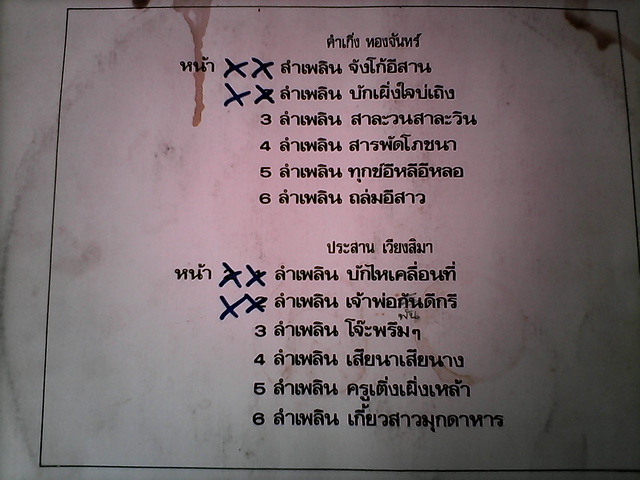 คำเกิ่ง ทองจันทร์
หน้า ลำเพลิน จังโก้อีสาน
ลำเพลิน บักเผิ่งใจบ่เถิง
3 ลำเพลิน สาละวนสาละวิน
4 ลำเพลิน สารพัดโภชนา
5 ลำเพลิน ทุกข์อีหลีอีหลอ
6 ลำเพลิน ถล่มอีสาว
ประสาน เวียงสิมา
หน้า ลำเพลิน บักไหเคลื่อนที่
2 ลำเพลิน เจ้าพ่อกันดีกรี
พัน
3 ลำเพลิน โจ๊ะพรึมๆ
4 ลำเพลิน เสียนาเสียนาง
5 ลำเพลิน ครูเติ่งเผิ่งเหล้า
6 ลำเพลิน เกี้ยวสาวมุกดาหาร